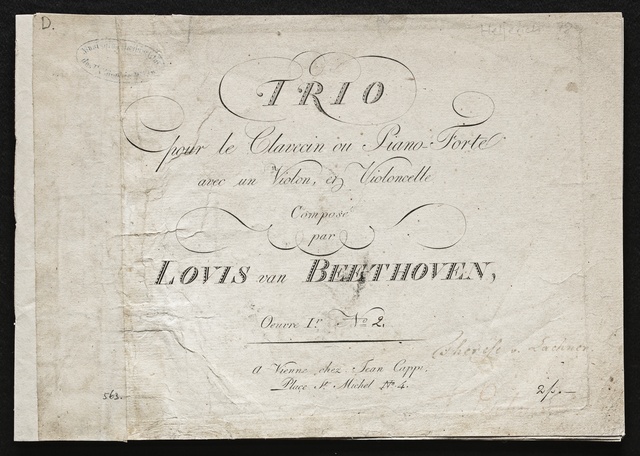 D.
TRIO
pour le Clavecin ou Piano-Forte
avec un Violon, et Violoncelle
Composé
par
LOVIS van BEETHOVEN,
Oeuvre I.r No 2.
A Vienne chez Jean Cappi.
Place St. Michel No 4.
563.
2f.—